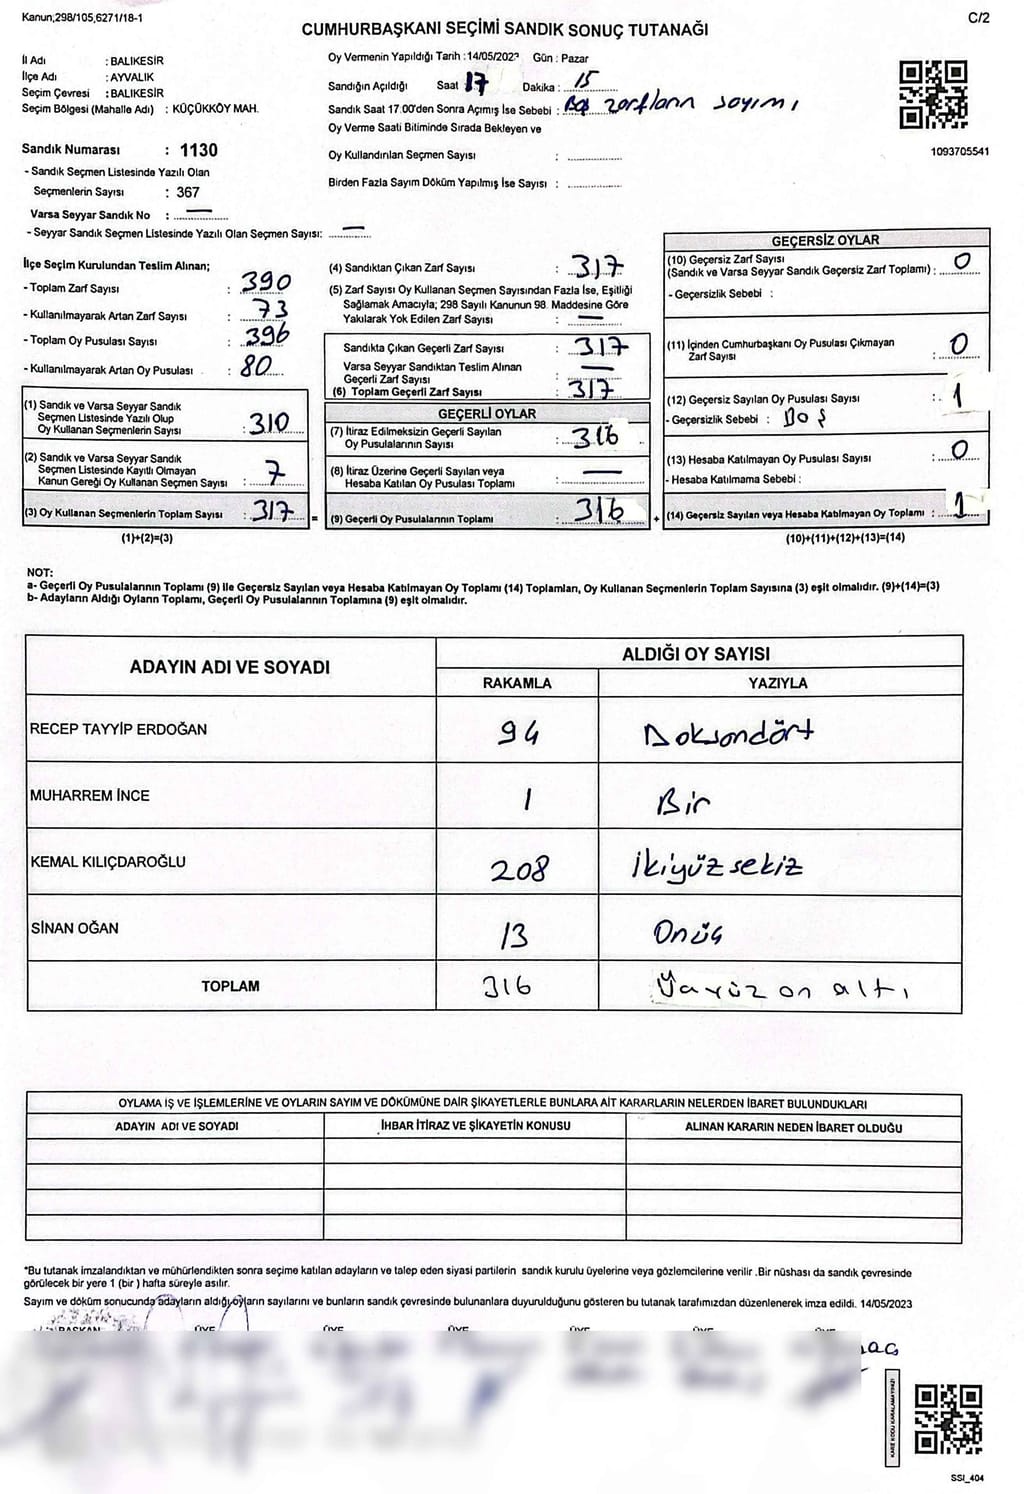 Kanun;298/105,6271/18-1
C/2
CUMHURBAŞKANI SEÇİMİ SANDIK SONUÇ TUTANAĞI
İl Adı : BALIKESİR
İlçe Adı : AYVALIK
Seçim Çevresi : BALIKESİR
Seçim Bölgesi (Mahalle Adı) : KÜÇÜKKÖY MAH.
Oy Vermenin Yapıldığı Tarih : 14/05/2023 Gün : Pazar
Sandığın Açıldığı Saat : 17 Dakika : 15
Sandık Saat 17.00'den Sonra Açımış İse Sebebi : Boş zarfların sayımı
Oy Verme Saati Bitiminde Sırada Bekleyen ve
Oy Kullandırılan Seçmen Sayısı :
Birden Fazla Sayım Döküm Yapılmış İse Sayısı :
1093705541
Sandık Numarası : 1130
- Sandık Seçmen Listesinde Yazılı Olan
Seçmenlerin Sayısı : 367
Varsa Seyyar Sandık No : —
- Seyyar Sandık Seçmen Listesinde Yazılı Olan Seçmen Sayısı: —
İlçe Seçim Kurulundan Teslim Alınan;
- Toplam Zarf Sayısı : 390
- Kullanılmayarak Artan Zarf Sayısı : 73
- Toplam Oy Pusulası Sayısı : 396
- Kullanılmayarak Artan Oy Pusulası : 80
(1) Sandık ve Varsa Seyyar Sandık
Seçmen Listesinde Yazılı Olup
Oy Kullanan Seçmenlerin Sayısı : 310
(2) Sandık ve Varsa Seyyar Sandık
Seçmen Listesinde Kayıtlı Olmayan
Kanun Gereği Oy Kullanan Seçmen Sayısı : 7
(3) Oy Kullanan Seçmenlerin Toplam Sayısı : 317 =
(1)+(2)=(3)
(4) Sandıktan Çıkan Zarf Sayısı : 317
(5) Zarf Sayısı Oy Kullanan Seçmen Sayısından Fazla İse, Eşitliği
Sağlamak Amacıyla; 298 Sayılı Kanunun 98. Maddesine Göre
Yakılarak Yok Edilen Zarf Sayısı : —
Sandıkta Çıkan Geçerli Zarf Sayısı : 317
Varsa Seyyar Sandıktan Teslim Alınan
Geçerli Zarf Sayısı : —
(6) Toplam Geçerli Zarf Sayısı : 317
GEÇERLİ OYLAR
(7) İtiraz Edilmeksizin Geçerli Sayılan
Oy Pusulalarının Sayısı : 316
(8) İtiraz Üzerine Geçerli Sayılan veya
Hesaba Katılan Oy Pusulası Toplamı : —
(9) Geçerli Oy Pusulalarının Toplamı : 316 +
GEÇERSİZ OYLAR
(10) Geçersiz Zarf Sayısı
(Sandık ve Varsa Seyyar Sandık Geçersiz Zarf Toplamı) : 0
- Geçersizlik Sebebi :
(11) İçinden Cumhurbaşkanı Oy Pusulası Çıkmayan
Zarf Sayısı : 0
(12) Geçersiz Sayılan Oy Pusulası Sayısı : 1
- Geçersizlik Sebebi : Boş
(13) Hesaba Katılmayan Oy Pusulası Sayısı : 0
- Hesaba Katılmama Sebebi :
(14) Geçersiz Sayılan veya Hesaba Katılmayan Oy Toplamı : 1
(10)+(11)+(12)+(13)=(14)
NOT:
a- Geçerli Oy Pusulalarının Toplamı (9) ile Geçersiz Sayılan veya Hesaba Katılmayan Oy Toplamı (14) Toplamları, Oy Kullanan Seçmenlerin Toplam Sayısına (3) eşit olmalıdır. (9)+(14)=(3)
b- Adayların Aldığı Oyların Toplamı, Geçerli Oy Pusulalarının Toplamına (9) eşit olmalıdır.
ADAYIN ADI VE SOYADI
ALDIĞI OY SAYISI
RAKAMLA YAZIYLA
RECEP TAYYİP ERDOĞAN 94 Doksandört
MUHARREM İNCE 1 Bir
KEMAL KILIÇDAROĞLU 208 İkiyüzsekiz
SİNAN OĞAN 13 Onüç
TOPLAM 316 on altı
OYLAMA İŞ VE İŞLEMLERİNE VE OYLARIN SAYIM VE DÖKÜMÜNE DAİR ŞİKAYETLERLE BUNLARA AİT KARARLARIN NELERDEN İBARET BULUNDUKLARI
ADAYIN ADI VE SOYADI İHBAR İTİRAZ VE ŞİKAYETİN KONUSU ALINAN KARARIN NEDEN İBARET OLDUĞU
*Bu tutanak imzalandıktan ve mühürlendikten sonra seçime katılan adayların ve talep eden siyasi partilerin sandık kurulu üyelerine veya gözlemcilerine verilir .Bir nüshası da sandık çevresinde
görülecek bir yere 1 (bir ) hafta süreyle asılır.
Sayım ve döküm sonucunda adayların aldığı oyların sayılarını ve bunların sandık çevresinde bulunanlara duyurulduğunu gösteren bu tutanak tarafımızdan düzenlenerek imza edildi. 14/05/2023
BAŞKAN ÜYE ÜYE ÜYE ÜYE ÜYE ÜYE
KARE KODU KARALAMAYINIZ!
SSI_404